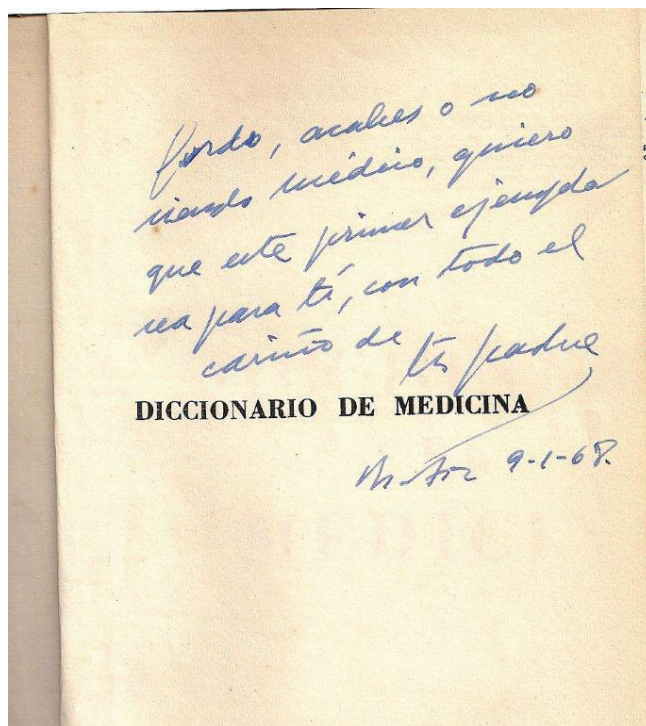 Gordo, acabes o no
siendo médico, quiero
que este primer ejemplar
sea para tí, con todo el
cariño de tu padre
DICCIONARIO DE MEDICINA
9-1-68.